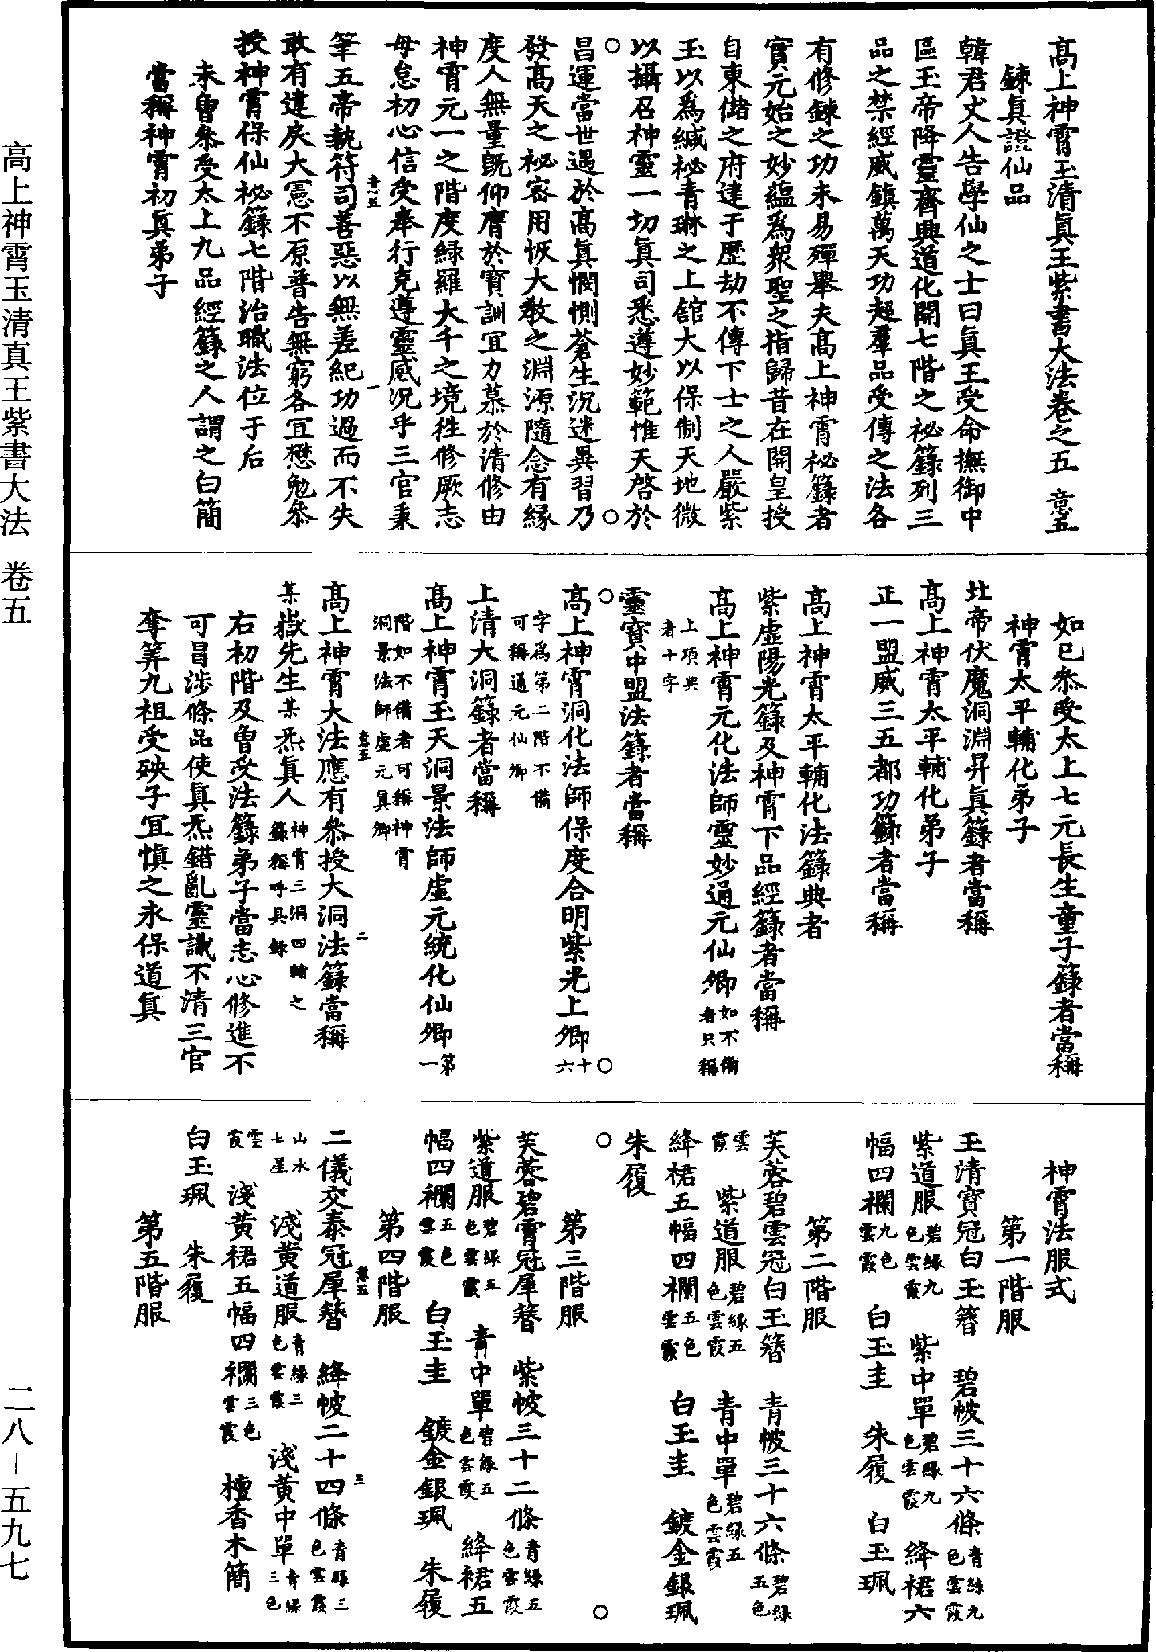 高上神霄玉清真王紫書大法卷之五　意五
鍊真證仙品
韓君丈人告學仙之士曰真王受命撫御中
區玉帝降靈齊興道化開七階之祕籙列三
品之禁經威鎮萬天功超羣品受傳之法各
有修鍊之功未易殫舉夫高上神霄祕籙者
實元始之妙蘊為衆聖之指歸昔在開皇授
自東儲之府達于歷劫不傳下士之人嚴紫
玉以為緘祕青琳之上館大以保制天地微
以攝召神靈一切真司悉遵妙範惟天啓於
昌運當世遇於高真憫惻蒼生沉迷異習乃
發高天之祕密用恢大教之淵源隨念有緣
度人無量既仰膺於寶訓宜力慕於清修由
神霄元一之階度緑羅大千之境徃修厥志
毋怠初心信受奉行克遵靈感况乎三官秉
筆五帝執符司善惡以無差紀功過而不失
敢有違戾大憲不原普告無窮各宜懋勉叅
授神霄保仙祕籙七階治職法位于后
未曾叅受太上九品經籙之人謂之白簡
當稱神霄初真弟子
如已叅受太上七元長生童子籙者當稱
神霄太平輔化弟子
北帝伏魔洞淵昇真籙者當稱
高上神霄太平輔化弟子
正一盟威三五都功籙者當稱
高上神霄太平輔化法籙典者
紫虛陽光籙及神霄下品經籙者當稱
高上神霄元化法師靈妙通元仙卿如不備者只稱
上項典者十字
靈寶中盟法籙者當稱
高上神霄洞化法師保度合明紫光上卿十六
字為第二階不備可稱通元仙卿
上清大洞籙者當稱
高上神霄玉天洞景法師虛元統化仙卿第一
階如不備者可稱神霄洞景法師虛元真卿
高上神霄大法應有叅授大洞法籙當稱
某嶽先生某炁真人神霄三洞四輔之籙稱呼具錄
右初階及曾受法籙弟子當志心修進不
可冒涉條品使真炁錯亂靈識不清三官
奪筭九祖受殃子宜慎之永保道真
神霄法服式
第一階服
玉清寶冠白玉簪　碧帔三十六條青緑九色雲霞
紫道服碧緑九色雲霞　紫中單碧緑九色雲霞　絳裙六
幅四襴九色雲霞　白玉圭　朱履　白玉珮
第二階服
芙蓉碧雲冠白玉簪　青帔三十六條碧緑五色
雲霞　紫道服碧緑五色雲霞　青中單碧緑五色雲霞
絳裙五幅四襴五色雲霞　白玉圭　鍍金銀珮
朱履
第三階服
芙蓉碧霄冠犀簪　紫帔三十二條青緑五色雲霞
紫道服碧緑五色雲霞　青中單碧緑五色雲霞　絳裙五
幅四襴五色雲霞　白玉圭　鍍金銀珮　朱履
第四階服
二儀交泰冠犀簪　絳帔二十四條青緑三色雲霞
山水七星　淺黃道服青緑三色雲霞　淺黃中單青緑三色
雲霞　淺黃裙五幅四襴三色雲霞　檀香木簡
白玉珮　朱履
第五階服
高上神霄玉清真王紫書大法　卷五
二八－五九七